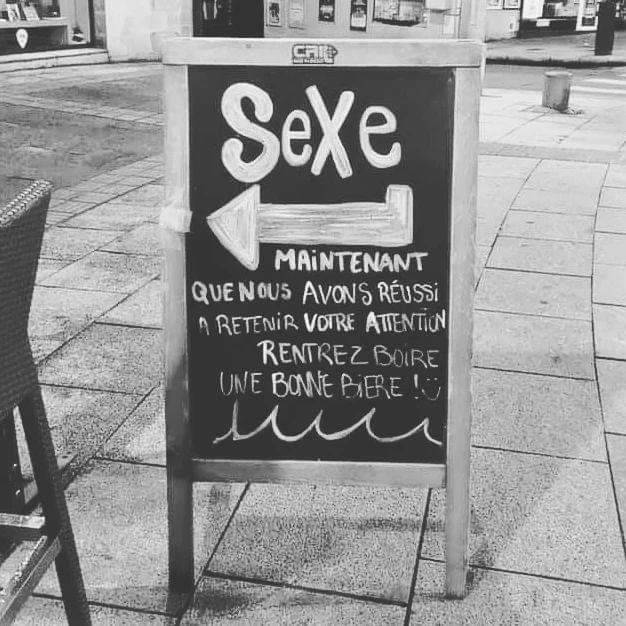 SeXe
MAINTENANT
QUE NOUS AVONS RÉUSSI
A RETENIR VOTRE ATTENTION
RENTREZ BOIRE
UNE BONNE BIERE !